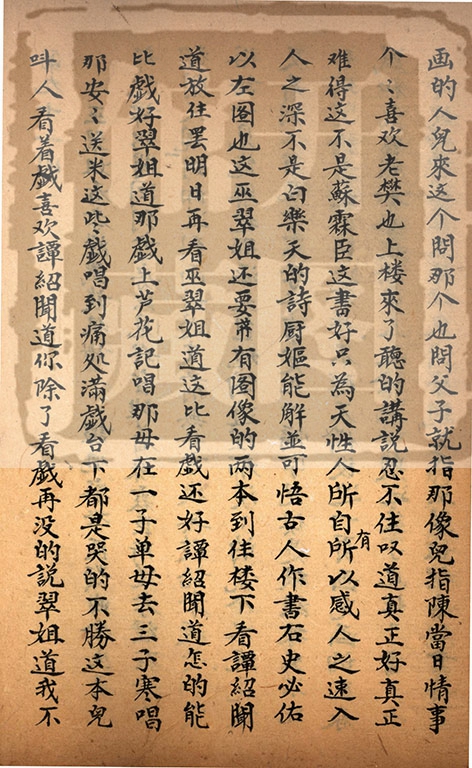 画的人兒來这个问那个也問父子就指那像兒指陳當日情事
个〻喜欢老樊也上楼來了聽的講說忍不住叹道真正好真正
难得这不是蘇霖臣这書好只為天性人所自所有以感人之速入
人之深不是白樂天的詩厨嫗能解並可悟古人作書右史必佑
以左图也这巫翠姐还要帶有图像的两本到住楼下看譚紹聞
道放住罢明日再看巫翠姐道这比看戲还好譚紹聞道怎的能
比戲好翠姐道那戲上芦花記唱那母在一子单母去三子寒唱
那安〻送米这些戲唱到痛处滿戲台下都是哭的不勝这本兒
叫人看着戲喜欢譚紹聞道你除了看戲再没的説翠姐道我不